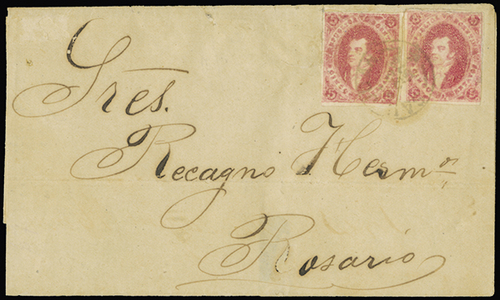 Sres.
Recagno Hermos
Rosario